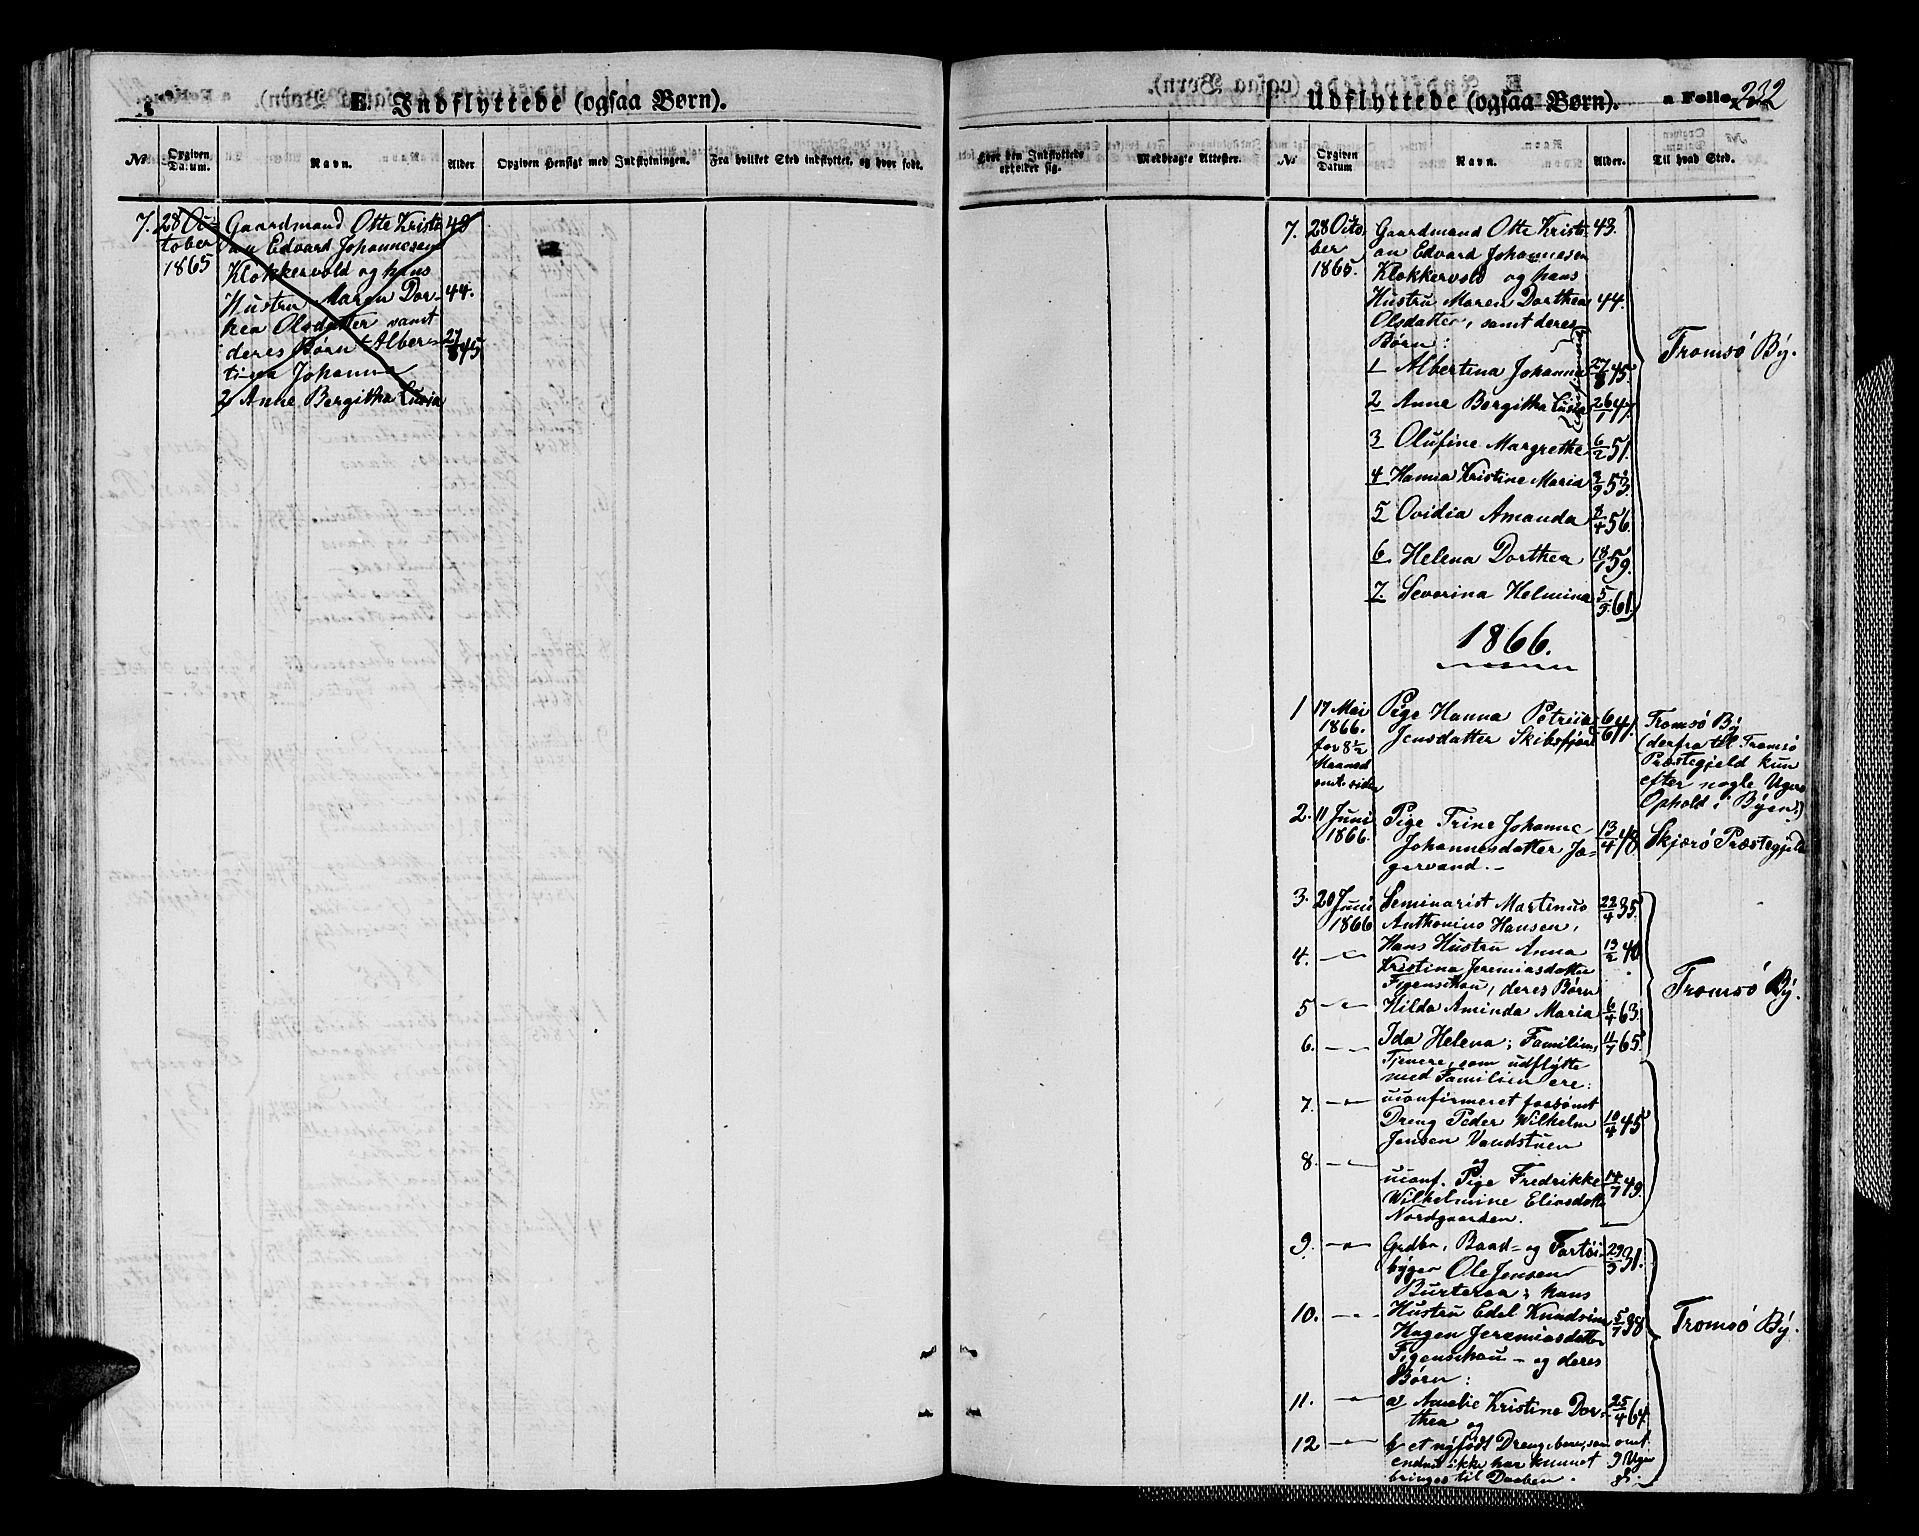 E. Indflyttede (ogsaa Børn).
No
Opgiven Datum.
Navn.
Alder
Opgiven Hensigt med Indflytningen.
Fra hvilket Sted indflyttet, og hvor født.
7.
28 Oc-
tober
1865
Gaardmand Otte Kristi-
an Edvard Johannesen
Klokkervold og hans
Hustru Maren Dor-
hea Olsdatter samt
deres Børn 1 Alber-
tina Johanna
2 Anne Bergitha Lusia
43
44.
27/8 45
Udflyttede (ogsaa Børn).
a Folio
232
Hvor den Indflyttede opholder sig.
Medbragte Attester.
No
Opgiven Datum
Navn.
Alder.
Til hvad Sted.
7.
28 Octo-
ber
1865.
Gaardmand Otte Kristi-
an Edvard Johannesen
Klokkervold og hans
Hustru Maren Dorthea
Olsdatter, samt deres
Børn:
43.
44.
1 Albertina Johanna 27/8 45.
2 Anne Bergitha Lusia 26/1 47.
3 Olufine Margrethe 6/2 51.
4 Hanna Kristine Maria 2/9 53.
5 Ovidia Amanda 2/4 56.
6 Helena Dorthea 18/1 59.
7 Severina Helmina 5/5 61.
Tromsö By.
1866.
1 17 Mai
1866.
for 8 1/2
Maaned
omt. siden
Pige Hanna Petrica
Jensdatter Skibsfjord
6/6 47.
Tromsö By
(derfra til Tromsö
Præstegjeld kun
efter nogle Ugers
Ophold i Byen.)
2. 11 Juni
1866.
Pige Trine Johanne
Johannesdatter Ja-
gervand. -
13/4 48
Skjærö Præstegjeld
3. 20 Juni
1866
Seminarist Martinus
Anthonius Hansen,
22/4 35.
4. -"-
Hans Hustru Anna
Kristina Jeremiasdatter
Figenschou, deres Børn
13/2 40
5 -"-
Hilda Aminda Maria 6/4 63.
6. -"-
Ida Helena; Familiens 11/7 65.
Tjenere, som udflytte
med Familien ere:
Tromsö By.
7. -"-
uconfirmeret forsømt
Dreng Peder Wilhelm
Jensen Vandstuen
10/4 45
8. -"-
og
uconf. Pige Fredrikke
Wilhelmine Eliasdatter
Nordgaarden.
14/7 49.
9. -"-
Grdbr, Baad- og Fartöi-
bygger Ole Jensen
Burteraa; hans
29/3 31.
10. -"-
Hustru Edel Knudsine
Hagen Jeremiasdatter
Figenschou - og deres
Børn:
5/7 38
Tromsö By.
11. -"-
a) Amalie Kristine Dor-
thea og
25/4 64.
12 -"-
b et nyfödt Drengebarn, som
endnu ikke har kunnet
bringes til Daaben.
omt.
9 Uger
gl.